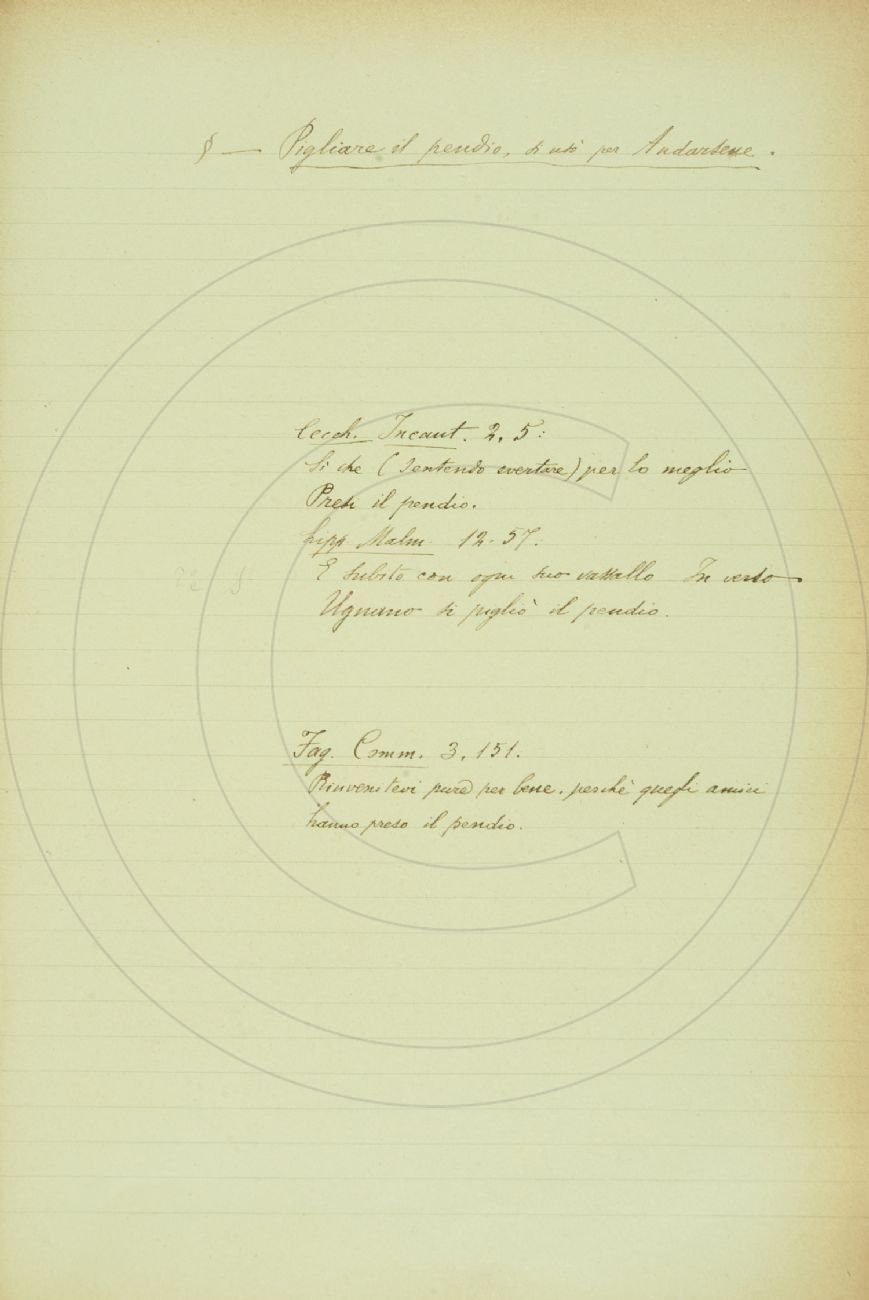 § — Pigliare il pendio, si usò per Andarsene.
Cecch. Incant. 2, 5:
Si che (sentendo evertare) per lo meglio
Presi il pendio.
Lipp. Malm. 12. 57.
E subito con ogni suo vassallo In verso
Ugnano si pigliò il pendio.
Fag. Comm. 3, 151.
Rinvenitevi pure per bene, perchè quegli amici
hanno preso il pendio.